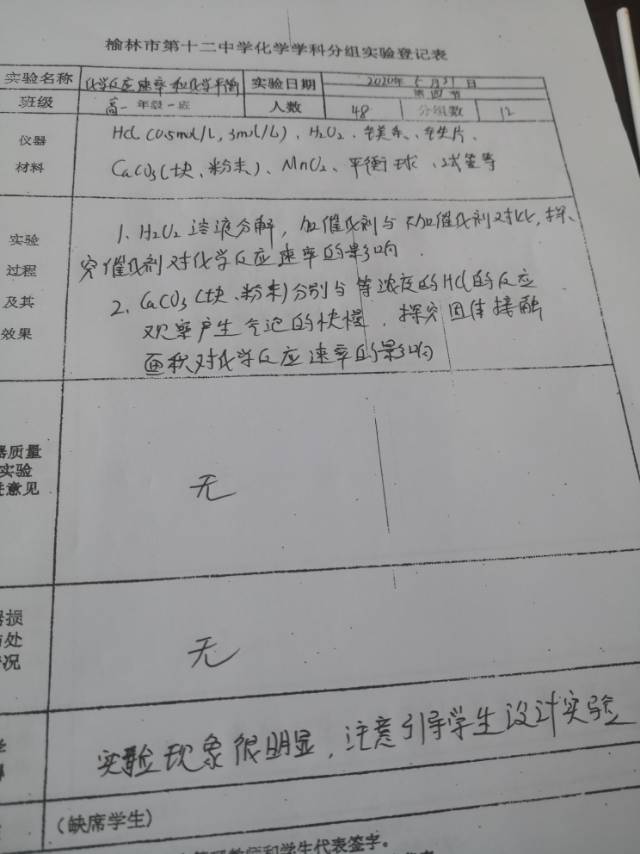 榆林市第十二中学化学学科分组实验登记表
实验名称 化学反应速率和化学平衡 实验日期 2020年5月31日
第四节
班级 高一年级一班 人数 48 分组数 12
仪器 HCl (0.5mol/L, 3mol/L)、H₂O₂、镁条、
材料 CaCO₃(块、粉末)、MnO₂、平衡球、试管等
实验 1. H₂O₂溶液分解,加催化剂与不加催化剂对比,探
过程 究催化剂对化学反应速率的影响
及其 2. CaCO₃(块、粉末)分别与等浓度的HCl的反应
效果 观察产生气泡的快慢,探究固体接触
面积对化学反应速率的影响
器质量
实验
意见
无
损
处
况
无
实验现象很明显,注意引导学生设计实验
(缺席学生)
教师和学生代表签字。